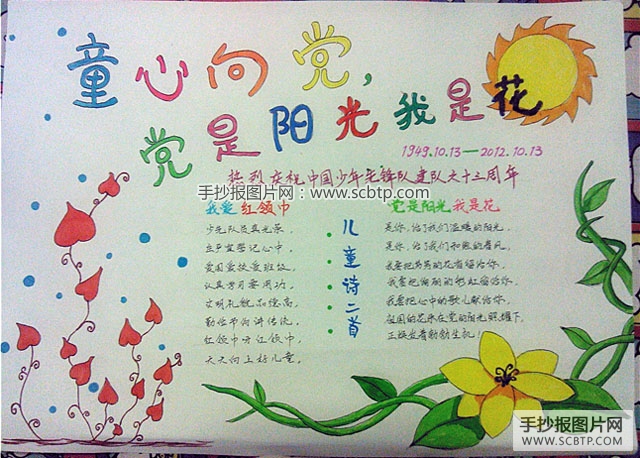 童心向党,
党是阳光我是花
1949.10.13—2012.10.13
热烈庆祝中国少年先锋队建队六十三周年
手抄报图片网:www.scbtp.com
我爱红领巾
少先队员真光荣,
记心中,
爱国爱校爱班级,
认真学习要用功,
文明礼貌品德高,
勤俭节约讲传统,
红领巾呀红领巾,
天天向上好儿童。
儿童诗二首
党是阳光我是花
是你,给了我们温暖的阳光,
是你,给了我们和煦的春风,
我要把芬芳的花香留给你,
我要把绚丽的彩虹留给你,
我要把心中的歌儿献给你,
祖国的花朵在党的阳光照耀下,
正焕发着勃勃生机!
手抄报图片网
WWW.SCBTP.COM